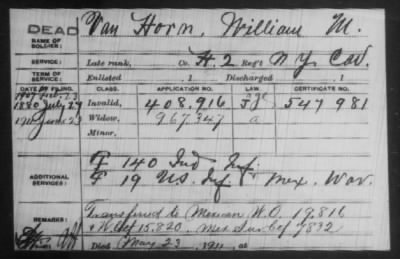 DEAD
NAME OF SOLDIER: Van Horn, William M.
SERVICE: Late rank, Co. H. 2 Reg't N.Y. Cav.
TERM OF SERVICE: Enlisted , 1 Discharged , 1
DATE OF FILING. CLASS. APPLICATION NO. LAW. CERTIFICATE NO.
1880 July 27 Invalid, 408.916 547 981
June 23 Widow, 967347 a
Minor.
ADDITIONAL SERVICES: F 140 Ind Inf.
F 19 US. Inf. & Mex. War.
REMARKS: Transferred to Mexican W.O. 19.816
15.820. Mex Sur. Cef 7832
Died May 23, 1911, at